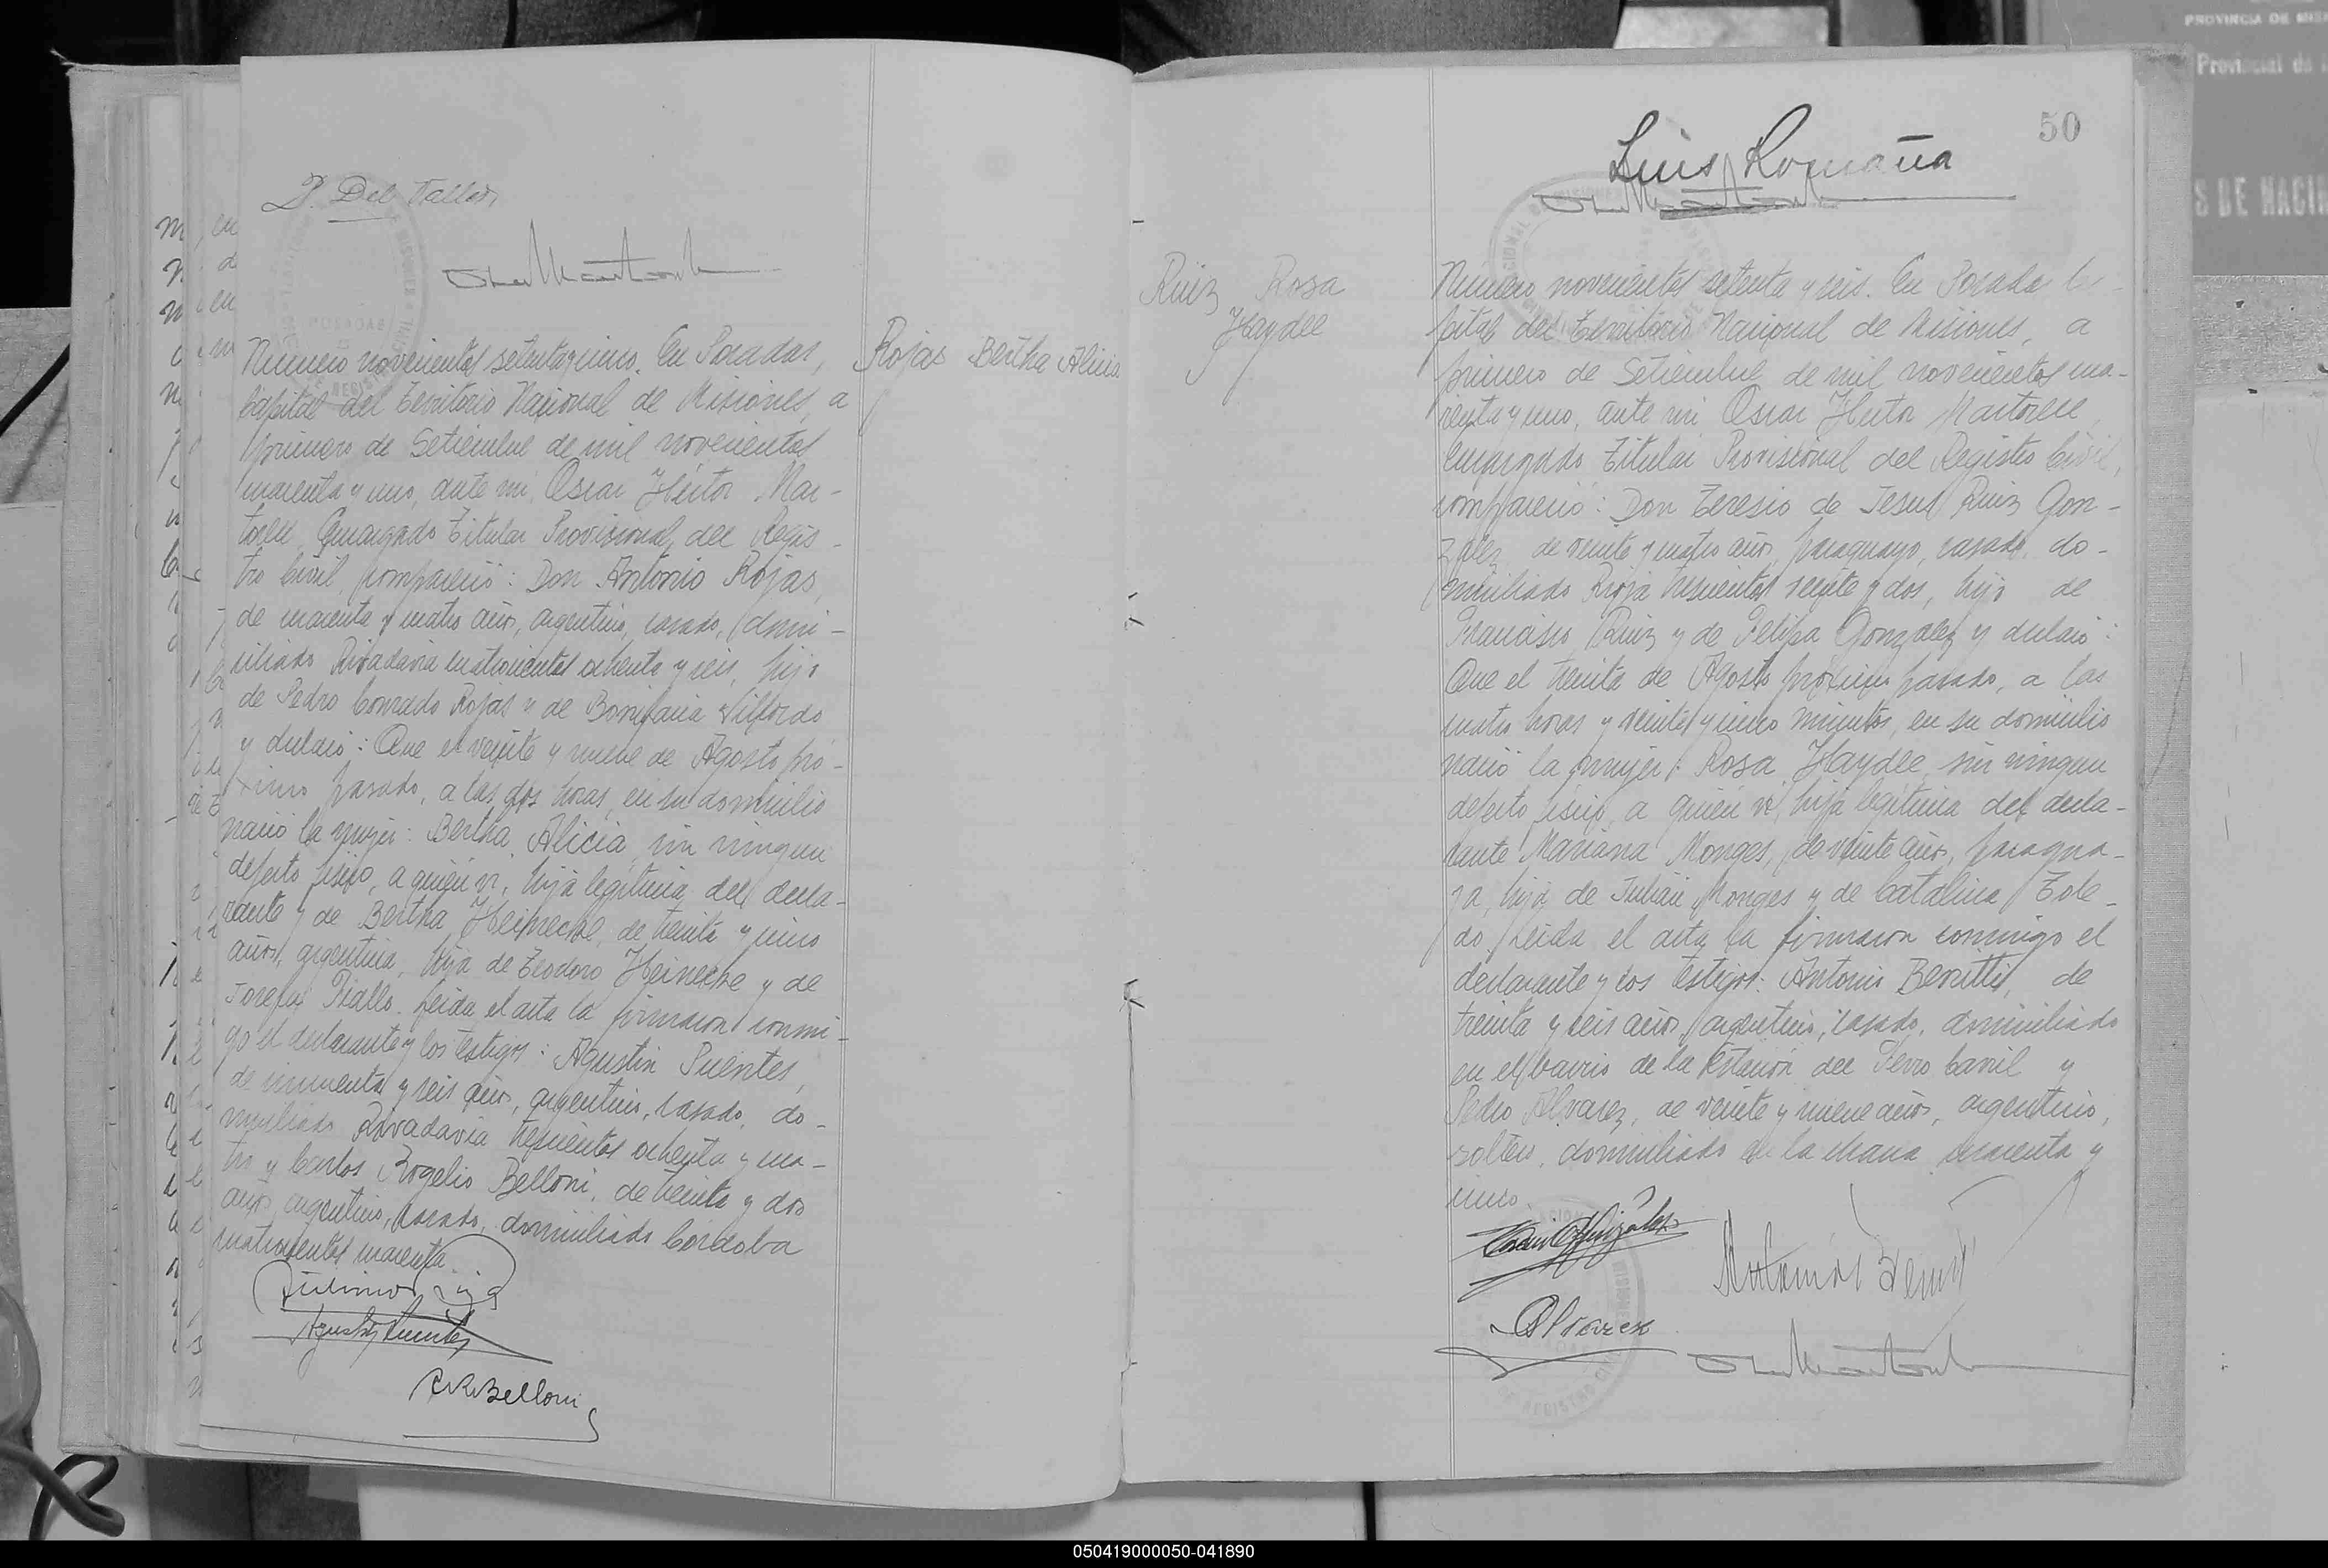 P. Del Valle
Número novecientos setenta y cinco. En Posadas,
Capital del Territorio Nacional de Misiones, a
primero de Setiembre de mil novecientos
cuarenta y uno, ante mi, Oscar Héctor Mar-
torell, Encargado Titular Provisional del Regis-
tro Civil, compareció: Don Antonio Rojas,
de cuarenta y cuatro años, argentino, casado, domi-
ciliado Rivadavia cuatrocientos ochenta y seis, hijo
de Pedro Conrado Rojas y de Bonifacia Vilfordo
y declaró: Que el veinte y nueve de Agosto pró-
ximo pasado, a las dos horas, en su domicilio
nació la mujer: Bertha Alicia, sin ningun
defecto físico, a quién vi, hija legítima del decla-
rante y de Bertha Heinecke, de treinta y cinco
años, argentina, hija de Teodoro Heinecke y de
Josefa Fiallo. Leida el acta la firmaron conmi-
go el declarante y los testigos: Agustin Puentes,
de cincuenta y seis años, argentino, casado, do-
miciliado Rivadavia trescientos ochenta y cua-
tro y Carlos Rogelio Belloni, de treinta y dos
años, argentino, casado, domiciliado Córdoba
cuatrocientos cuarenta
Agustin Puentes
C.R. Belloni
Rojas Bertha Alicia
50
Luis Romaña
Ruiz Rosa
Haydee
Número novecientos setenta y seis. En Posadas Ca-
pital del Territorio Nacional de Misiones, a
primero de Setiembre de mil novecientos cua-
renta y uno, ante mi Oscar Héctor Martorell,
Encargado Titular Provisional del Registro Civil,
compareció: Don Teresio de Jesus Ruiz Gon-
zalez, de veinte y cuatro años, paraguayo, casado, do-
miciliado Rioja trescientos veinte y dos, hijo de
Francisco Ruiz y de Felipa Gonzalez y declaró:
Que el treinta de Agosto próximo pasado, a las
cuatro horas y veinte y cinco minutos, en su domicilio
nació la mujer: Rosa Haydee sin ningun
defecto físico, a quién vi, hija legítima del decla-
rante Mariana Monges, de veinte años, paragua-
ya, hija de Julián Monges y de Catalina Tole-
do. Leida el acta la firmaron conmigo el
declarante y los testigos: Antonio Benitti, de
treinta y seis años, argentino, casado, domiciliado
en el barrio de la Estación del Ferro Carril y
Pedro Alvarez, de veinte y nueve años, argentino,
soltero, domiciliado en la chacra cuarenta y
cinco.
Alvarez
PROVINCIA DE MIS
Provincial de
S DE NACIM
050419000050-041890